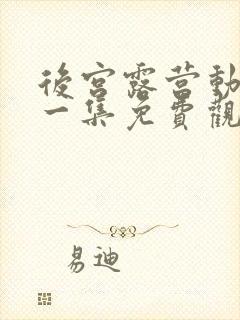 後宮露营動
一集免費觀
易迪